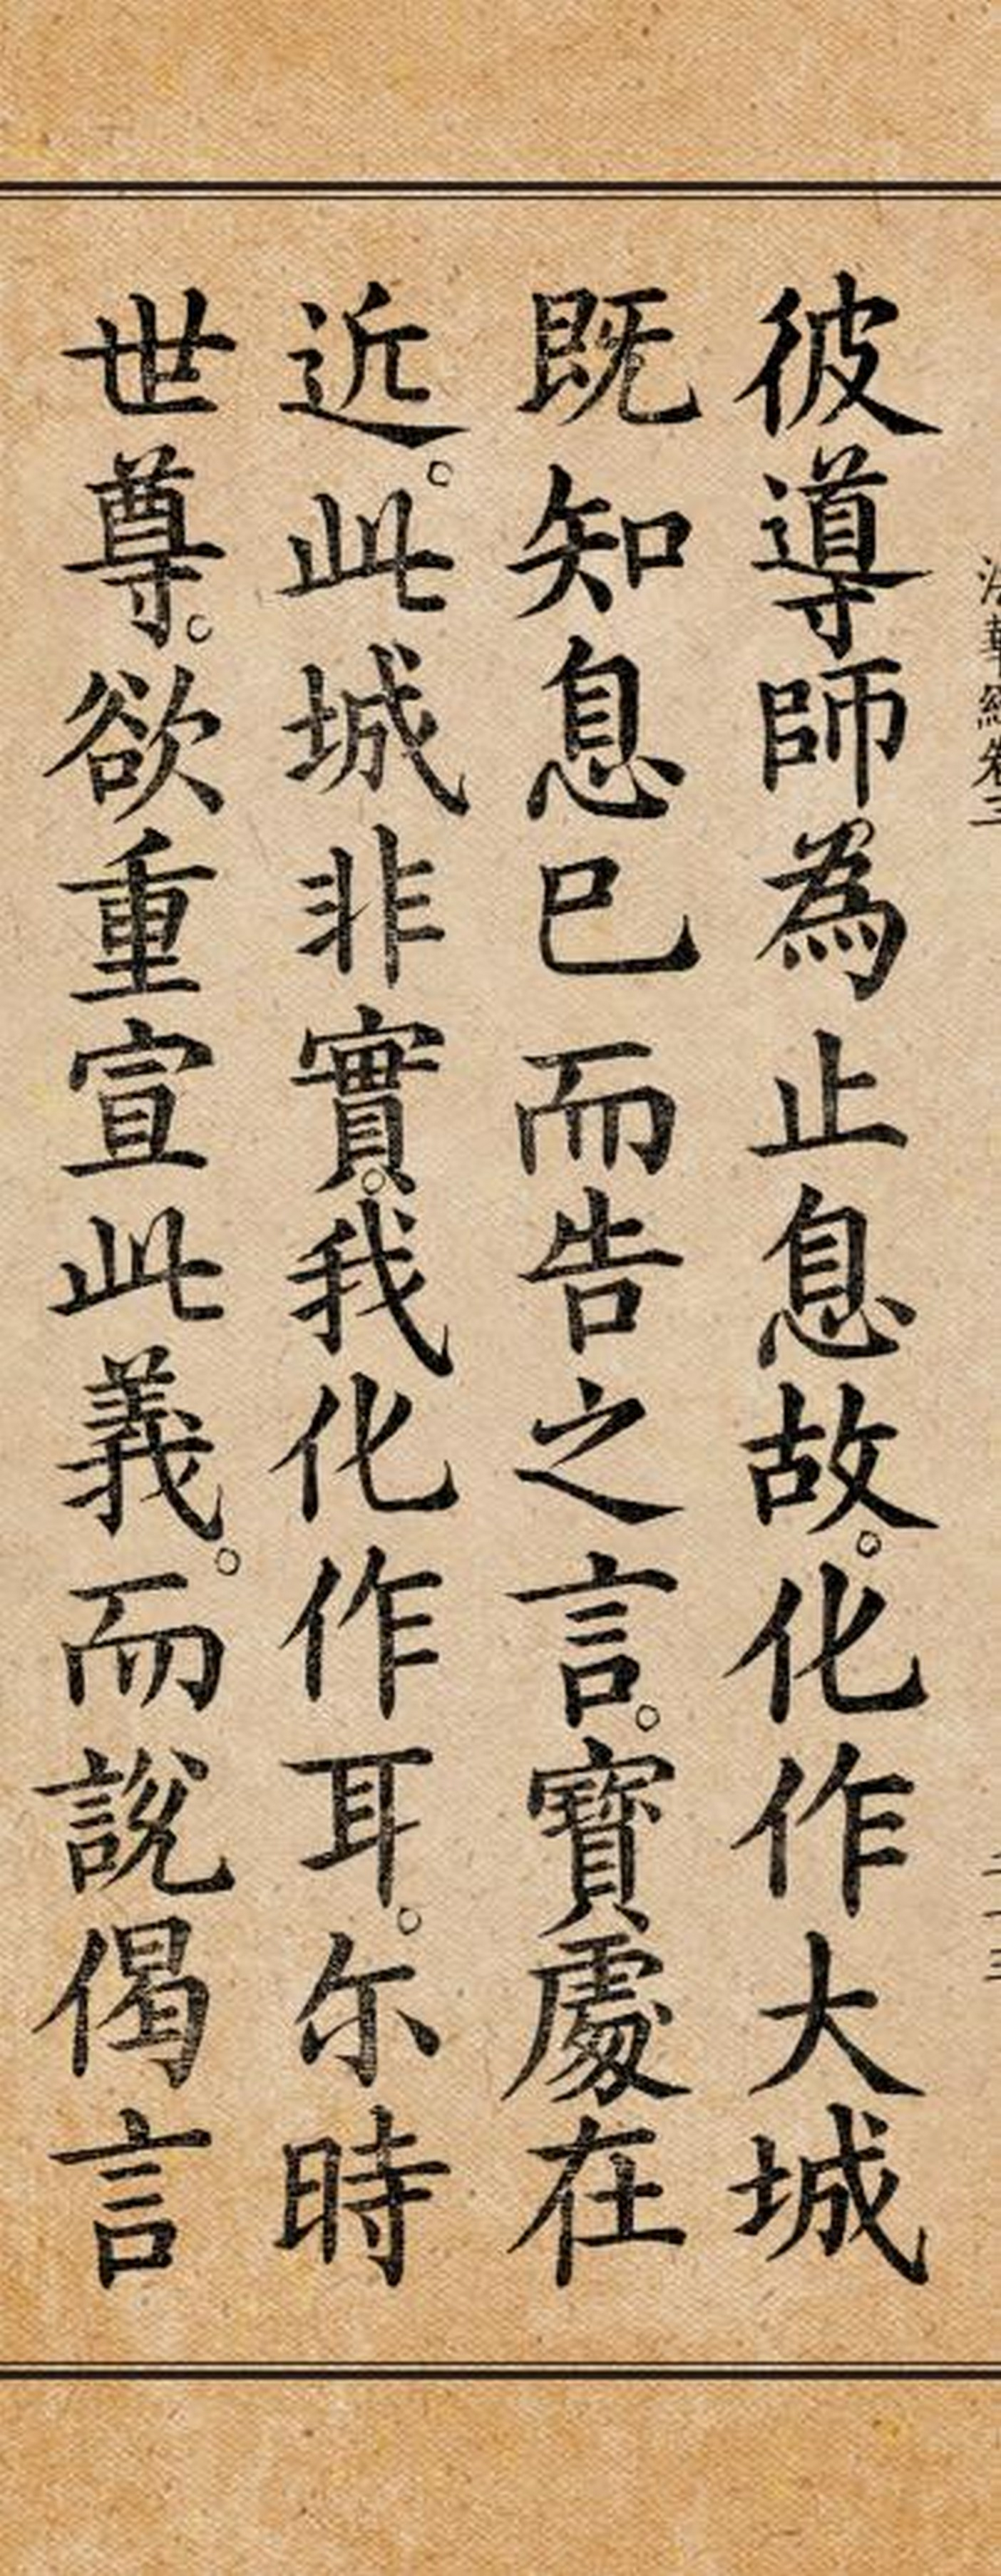 法華經卷三
二十三
彼導師為止息故。化作大城
既知息已而告之言。寶處在
近。此城非實。我化作耳。尔時
世尊。欲重宣此義。而說偈言